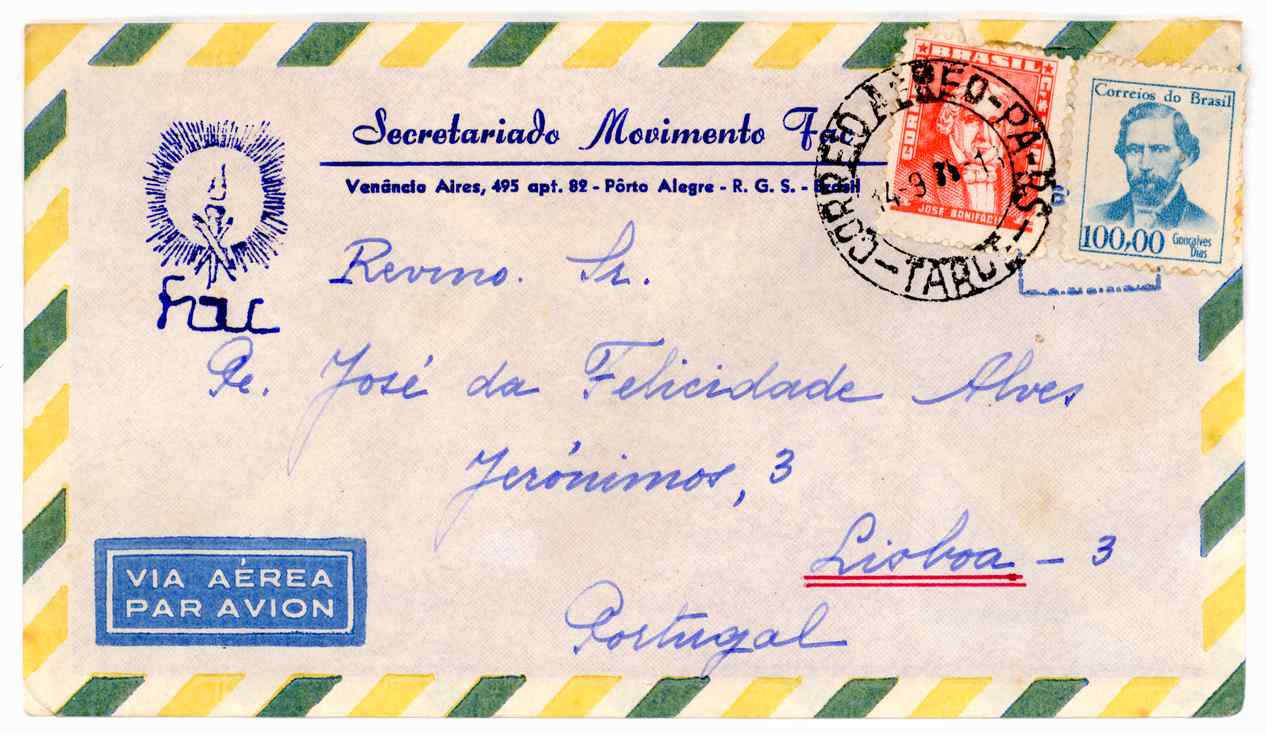 Secretariado Movimento Fac
Venâncio Aires, 495 apt. 82 - Pôrto Alegre - R. G. S. - Brasil
fac
BRASIL
CORREIO
JOSÉ BONIFÁCIO
CORREIO AEREO-PA-RS-TARDE-
14-9
Correios do Brasil
100,00 Gonçalves Dias
Revmo. Sr.
Pe. José da Felicidade Alves
Jerónimos, 3
Lisboa - 3
Portugal
VIA AÉREA
PAR AVION